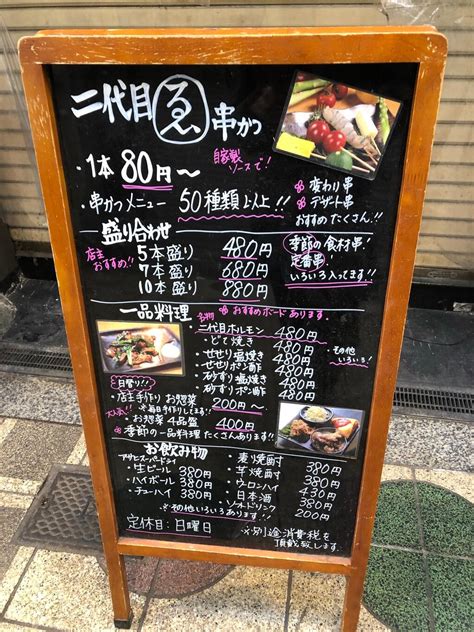 二代目 ゑ 串かつ
・1本 80円〜 自家製ソースで!
・串かつメニュー 50種類以上!!
※変わり串
※デザート串
おすすめたくさん!!
盛り合わせ
店主おすすめ!!
5本盛り 480円
7本盛り 680円
10本盛り 880円
季節の食材串!
定番串!
いろいろ入ってます!!
一品料理 ※おすすめボードあります。
名物
・二代目ホルモン 480円
・どて焼き 480円
・せせり塩焼き 480円
・せせりポン酢 480円
・砂ずり塩焼き 480円
・砂ずりポン酢 480円
・その他いろいろ!
日替り!!
・店主手作りお惣菜 200円〜
大人気!! ※毎日手作りしてます!!
・お惣菜4品盛 400円
※季節の一品料理たくさんあります!!
お飲み物
アサヒスーパードライ
・生ビール 380円
・ハイボール 380円
・チューハイ 380円
・麦焼酎 380円
・芋焼酎 380円
・ウーロンハイ 380円
・日本酒 430円
・ソフトドリンク 200円
※他いろいろあります!!
定休日:日曜日
※別途消費税を
頂戴致します。